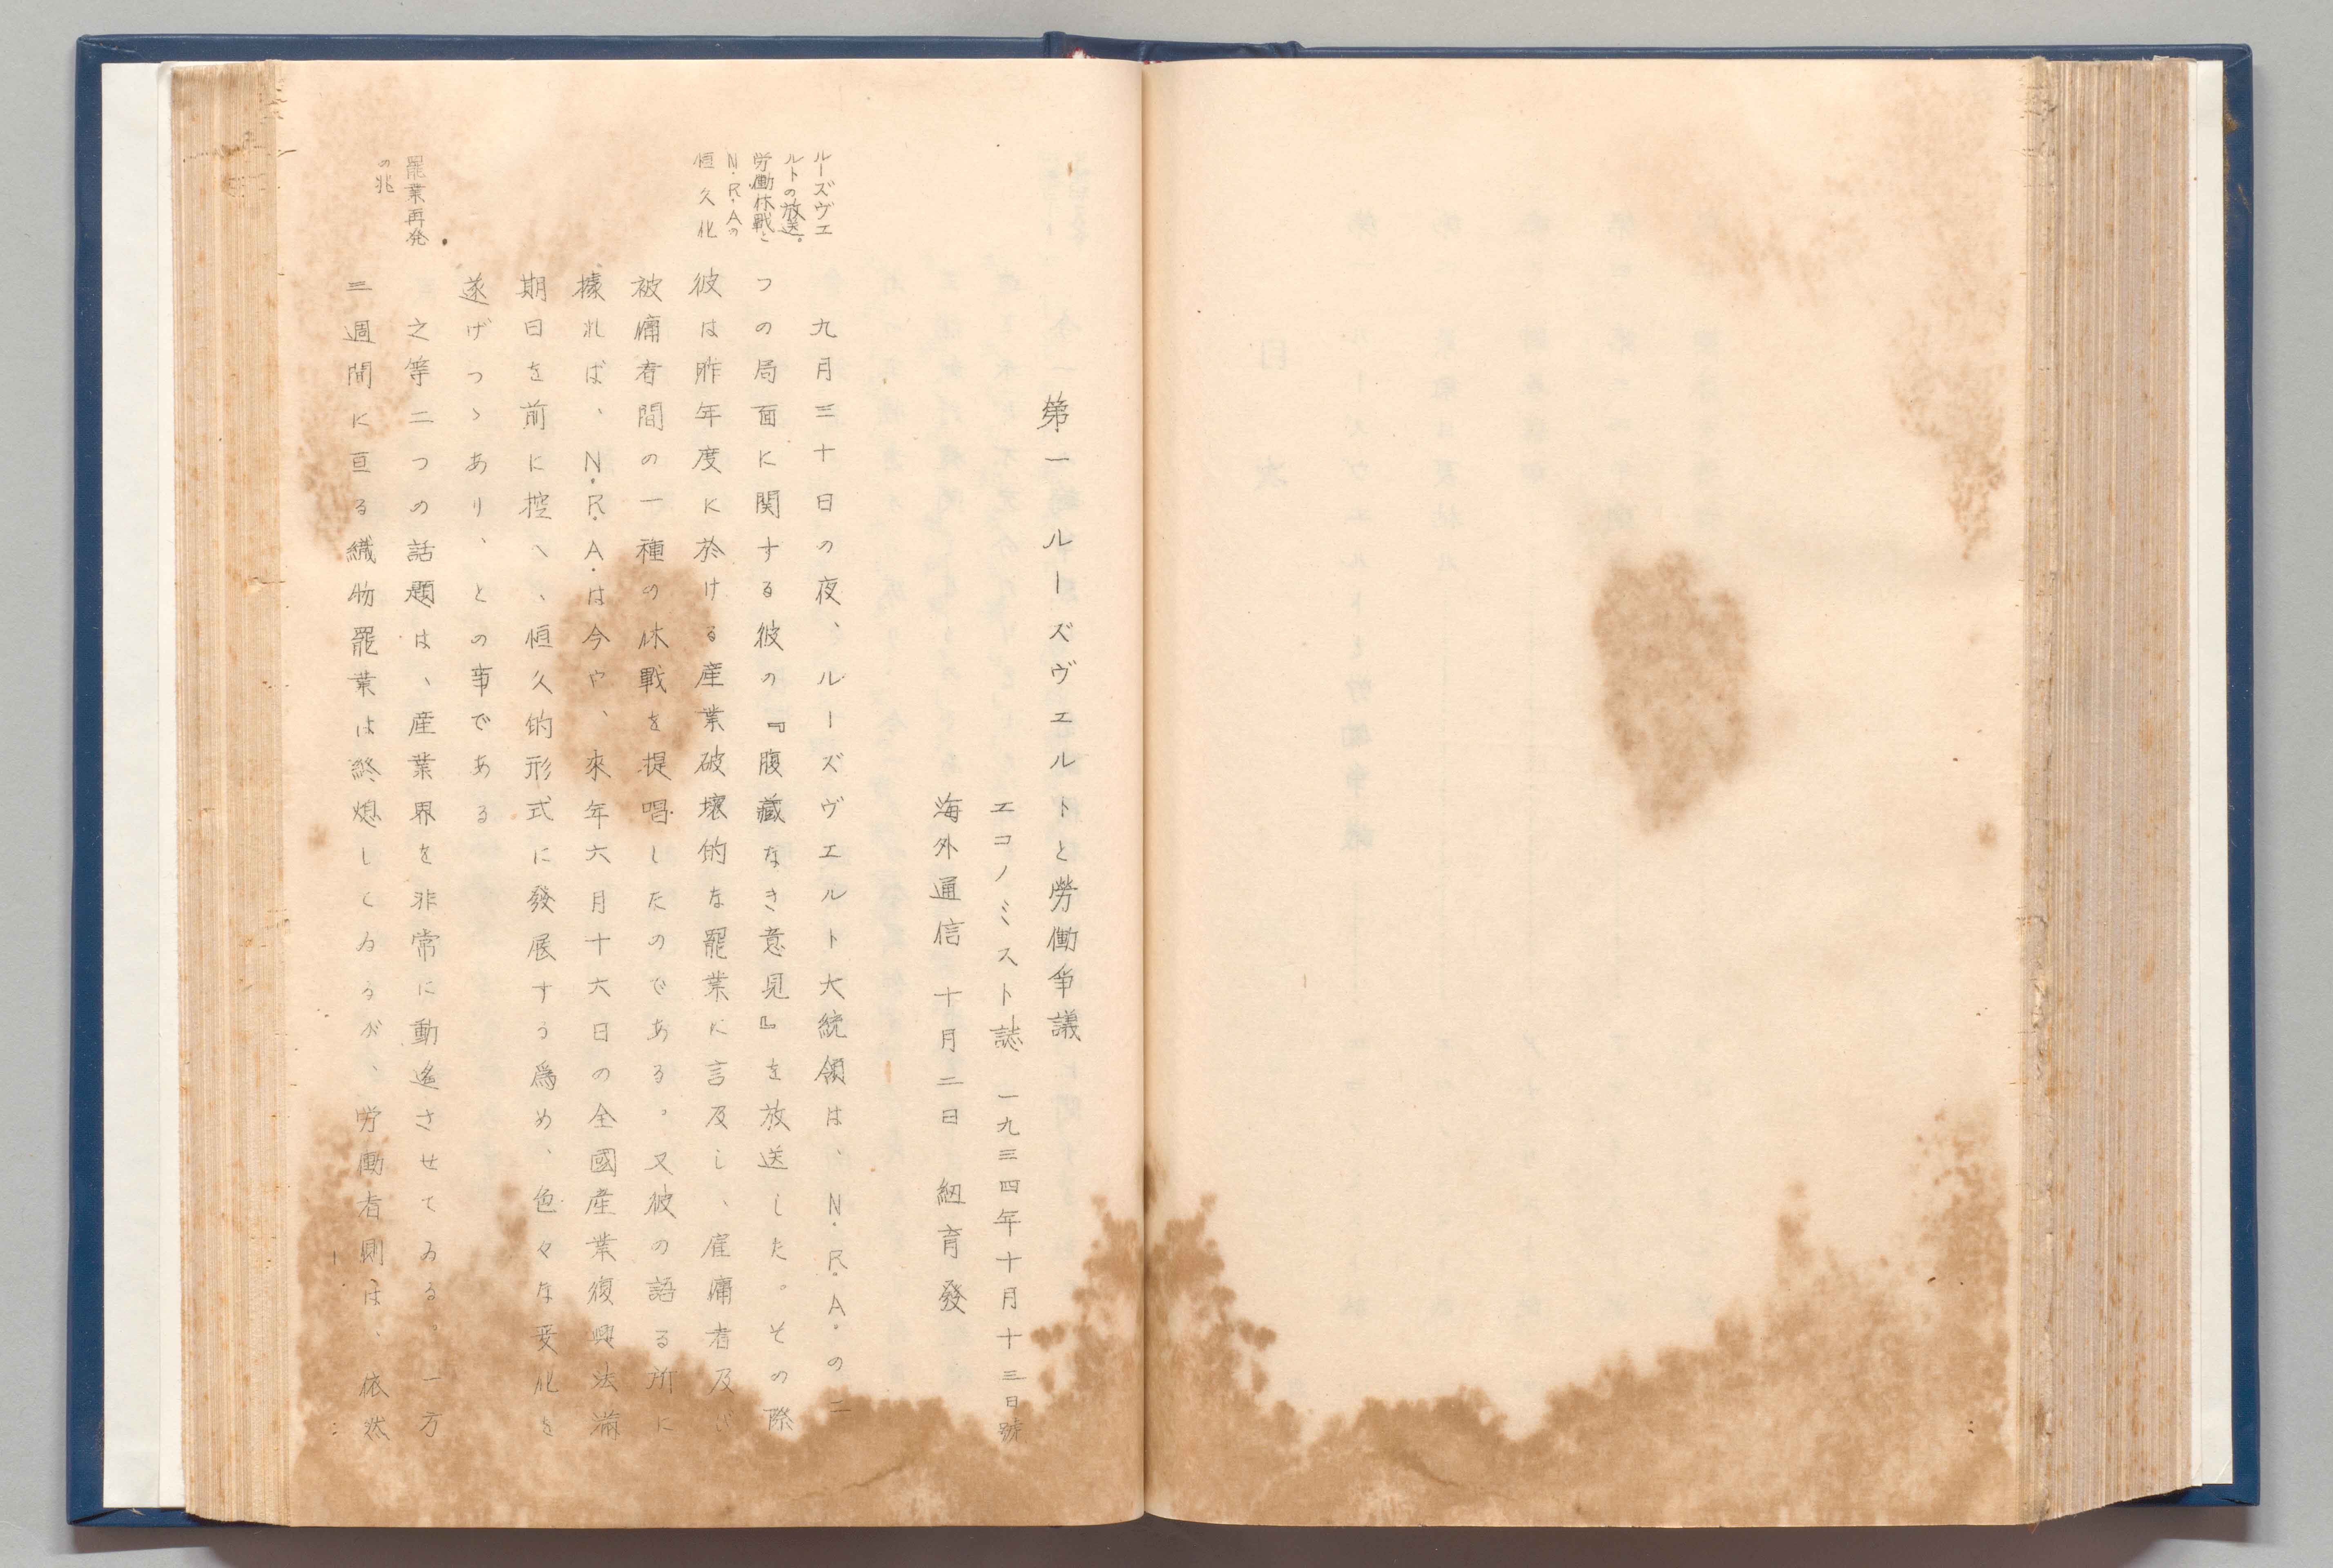 第一 ルーズヴェルトと勞働爭議
エコノミスト誌 一九三四年十月十三日號
海外通信 十月二日 紐育發
ルーズヴェ
ルトの放送。
労働休戰と
N.R.Aの
恒久化
九月三十日の夜、ルーズヴェルト大統領は、N.R.A.の二
つの局面に関する彼の『腹藏なき意見』を放送した。その際
彼は昨年度に於ける産業破壞的な罷業に言及し、雇傭者及び
被傭者間の一種の休戰を提唱したのである。又彼の語る所に
據れば、N.R.A.は今や、來年六月十六日の全國産業復興法滿
期日を前に控へ、恒久的形式に發展する爲め、色々な変化を
遂げつゝあり、との事である
罷業再発
の兆
之等二つの話題は、産業界を非常に動遙させてゐる。一方
三週間に亘る織物罷業は終熄してゐるが、労働者側は、依然